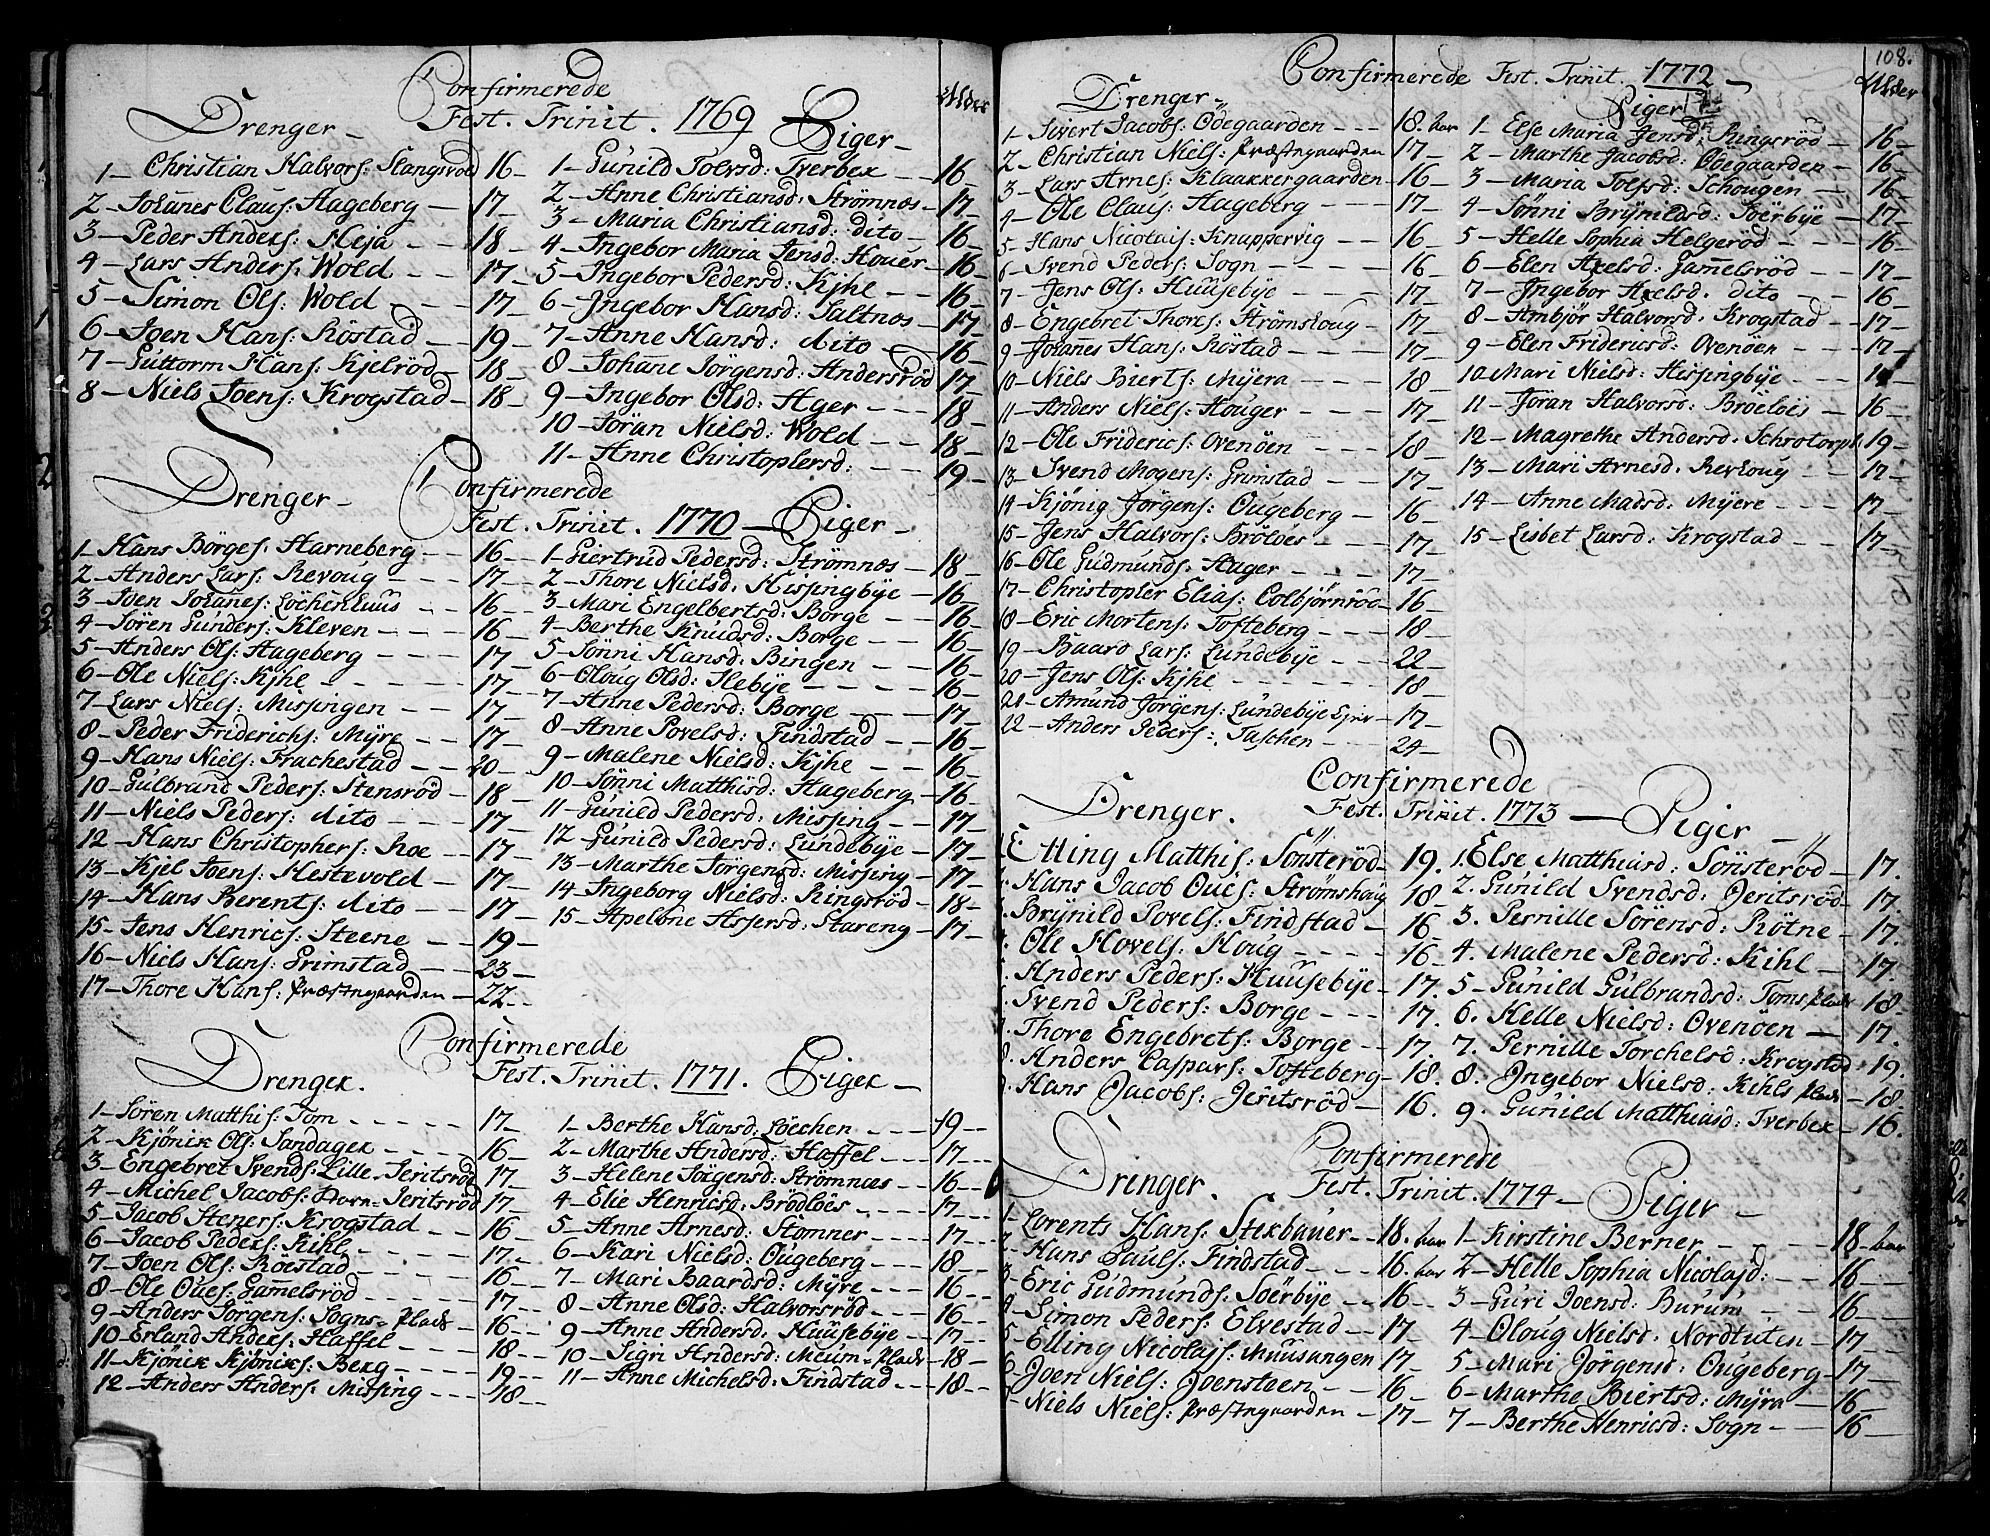 Confirmerede
Fest. Trinit. 1769
Drenger
1 Christian Halvors: Slangsvold 16
2 Johanes Claus: Hageberg 17
3 Peder Anders: Heja 18
4 Lars Anders: Wold 17
5 Simon Ols: Wold 17
6 Joen Hans: Röstad 19
7 Guttorm Hans: Kjelröd 18
8 Niels Joens: Krogstad 18
Piger
Alder
1 Gunild Tolvsd: Tverbek 16
2 Anne Christiansd: Strömnæs 17
3 Maria Christiansd: dito 16
4 Ingebor Maria Jensd: Houer 16
5 Ingebor Pedersd: Kjhl 16
6 Jngebor Hansd: Saltnæs 17
7 Anne Hansd: dito 16
8 Johane Jörgensd: Andersröd 17
9 Ingebor Olsd: Ager 18
10 Jöran Nielsd: Wold 18
11 Anne Christophersd: 19
Confirmerede
Fest. Trinit. 1770
Drenger
1 Hans Börges: Harneberg 16
2 Anders Lars: Revoug 17
3 Joen Johanes: Löchenhuus 16
4 Sören Gunders: Kleven 16
5 Anders Ols: Hageberg 17
6 Ole Niels: Kjhl 17
7 Lars Niels: Missingen 17
8 Peder Friderichs: Myre 17
9 Hans Niels: Frachestad 20
10 Gulbrand Peders: Stensröd 18
11 Niels Peders: dito 17
12 Hans Christophers: Roe 17
13 Kjel Joens: Hestevold 17
14 Hans Berents: dito 17
15 Jens Henrics: Steene 19
16 Niels Hans: Grimstad 23
17 Thore Hans: Præstegaarden 22
Piger
1 Giertrud Pedersd: Strömnæs 18
2 Thore Nielsd: Hissingbye 16
3 Mari Engelbertsd: Borge 16
4 Berthe Knudsd: Borge 16
5 Sönni Hansd: Bingen 16
6 Oloug Olsd: Ilebye 16
7 Anne Pedersd: Borge 17
8 Anne Povelsd: Findstad 16
9 Malene Nielsd: Kjhl 16
10 Sönni Matthisd: Hageberg 16
11 Gunild Pedersd: Missing 17
12 Gunild Pedersd: Lundebye 17
13 Marthe Jörgensd: Missing 17
14 Ingeborg Nielsd: Ringsröd 18
15 Apelone Assersd: Stareng 17
Confirmerede
Fest. Trinit. 1771.
Drenger.
1 Sören Matthis: Tom 17
2 Kjönik Ols: Sandager 16
3 Engebret Svends: Lille-Jeritsröd 17
4 Michel Jacobs: Horn-Jeritsröd 17
5 Jacob Steners: Krogstad 16
6 Jacob Peders: Kihl 17
7 Joen Ols: Röestad 16
8 Ole Oues: Gamelsröd 17
9 Anders Jörgens: Sogns-Plads 16
10 Erland Anders: Haffel 18
11 Kjönik Kjöniks: Berg 19
12 Anders Anders: Missing 18
Piger
1 Berthe Hansd: Löechen 19
2 Marthe Andersd: Haffel 17
3 Helene Jörgensd: Strömnæs 16
4 Elie Henricsd: Brödlöes 17
5 Anne Arnesd: Stomner 17
6 Kari Nielsd: Ougeberg 18
7 Mari Baardsd: Myre 16
8 Anne Olsd: Halvorsröd 16
9 Anne Andersd: Huusebye 17
10 Sigri Andersd: Meum-Plads 18
11 Anne Michelsd: Findstad 18
108.
Confirmerede Fest. Trinit. 1772
Drenger
1 Sivert Jacobs: Ödegaarden 18. aar
2 Christian Niels: Præstegaarden 17
3 Lars Arnes: Klaakkergaarden 16
4 Ole Claus: Hageberg 17
5 Hans Nicolais: Knappervig 16
6 Svend Peders: Sogn 16
7 Jens Ols: Huusebye 17
8 Engebret Thores: Strömshoug 17
9 Johannes Hans: Rostad 17
10 Niels Bierts: Myera 18
11 Anders Niels: Houger 17
12 Ole Friderics: Ovenöen 18
13 Svend Mogens: Grimstad 17
14 Kjönig Jörgens: Ougeberg 16
15 Jens Halvors: Brölöes 17
16 Ole Gudmunds: Hager 17
17 Christopher Elias: Colbjörnröd 16
18 Eric Mortens: Tofteberg 18
19 Baard Lars: Lundebye 22
20 Jens Ols: Kjhl 18
21 Amund Jörgens: Lundebye Ejer 17
22 Anders Peders: Taschen 24
Piger
Alder
1 Else Maria Jensd: Ringsröd 16
2 Marthe Jacobsd: Ödegaarden 16
3 Maria Tolfsd: Schougen 16
4 Sönni Brynildsd: Soerbye 17
5 Helle Sophia Helgeröd 16
6 Elen Axelsd: Gamelsröd 17
7 Jngebor Axelsd. dito 16
8 Ambjör Halvorsd: Krogstad 17
9 Elen Fridericsd: Ovenöen 17
10 Mari Nielsd: Hissingbye
11 Joran Halvorsd: Bröelöes 16
12 Magrethe Andersd: Schrotorph 19
13 Mari Arnesd. Revhoug 17
14 Anne Madsd: Myere 17
15 Lisbet Larsd: Krogstad 17
Confirmerede
Fest. Trinit. 1773
Drenger.
Elling Matthis: Sönsteröd 19.
Hans Jacob Oues: Strömshaug 18
Brynild Povels: Findstad 16
Ole Hovels: Houg 16
Anders Peders: Huusebye 17.
Svend Peders: Borge 17.
Thore Engebrets: Borge 17
8. Anders Caspars: Tofteberg 18.
Hans Jacobs: Jeritsröd 16.
Piger
1. Else Matthiasd: Sönsteröd 17.
2. Gunild Svendsd: Jeritsröd 17.
3. Pernille Sörensd: Rötne 17.
4. Malene Pedersd: Kihl 17.
5 Gunild Gulbrandsd: Toms Plads 18
6. Helle Nielsd: Ovenöen 17.
7. Pernille Torchelsd: Krogstad 19.
8. Jngebor Nielsd: Kihls Plads 18
9. Gunild Matthiasd: Tverbek 16.
Confirmerede
Fest. Trinit. 1774
Drenger.
1 Lorents Hans: Stexbauer 18. aar
2 Hans Pauls: Findstad 16. aar
3 Eric Gudmunds: Soërbye 16
4 Simon Peders: Elvestad 17
5 Elling Nicolajs: Muusangen 17
6 Joen Niels: Joensteen 16
7 Niels Niels: Præstegaarden 17
Piger
1 Kirstine Berner 18 aar
2 Helle Sophia Nicolajd: 16
3 Guri Joensd: Burum 16
4 Oloug Nielsd: Nordtuten 17
5 Mari Jörgensd: Ougeberg 17
6 Marthe Biertsd: Myra 16
7 Berthe Henricsd: Sogn 16